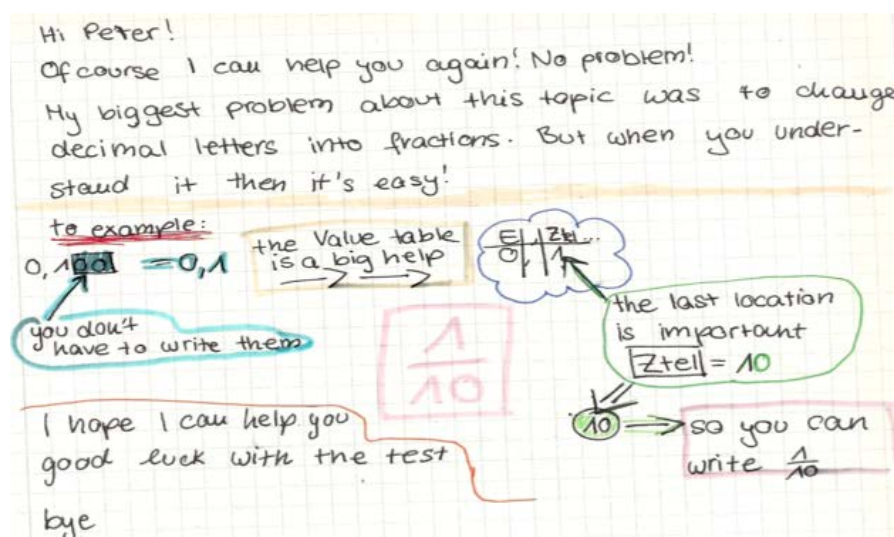 Hi Peter!
Of course I can help you again! No problem!
My biggest problem about this topic was to change
decimal letters into fractions. But when you under-
stand it then it's easy!
to example:
0,100 = 0,1
you don't
have to write them
the Value table
is a big help
E , Ztel...
0 , 1
the last location
is important
Ztel = 10
10
so you can
write 1/10
1/10
I hope I can help you
good luck with the test
bye